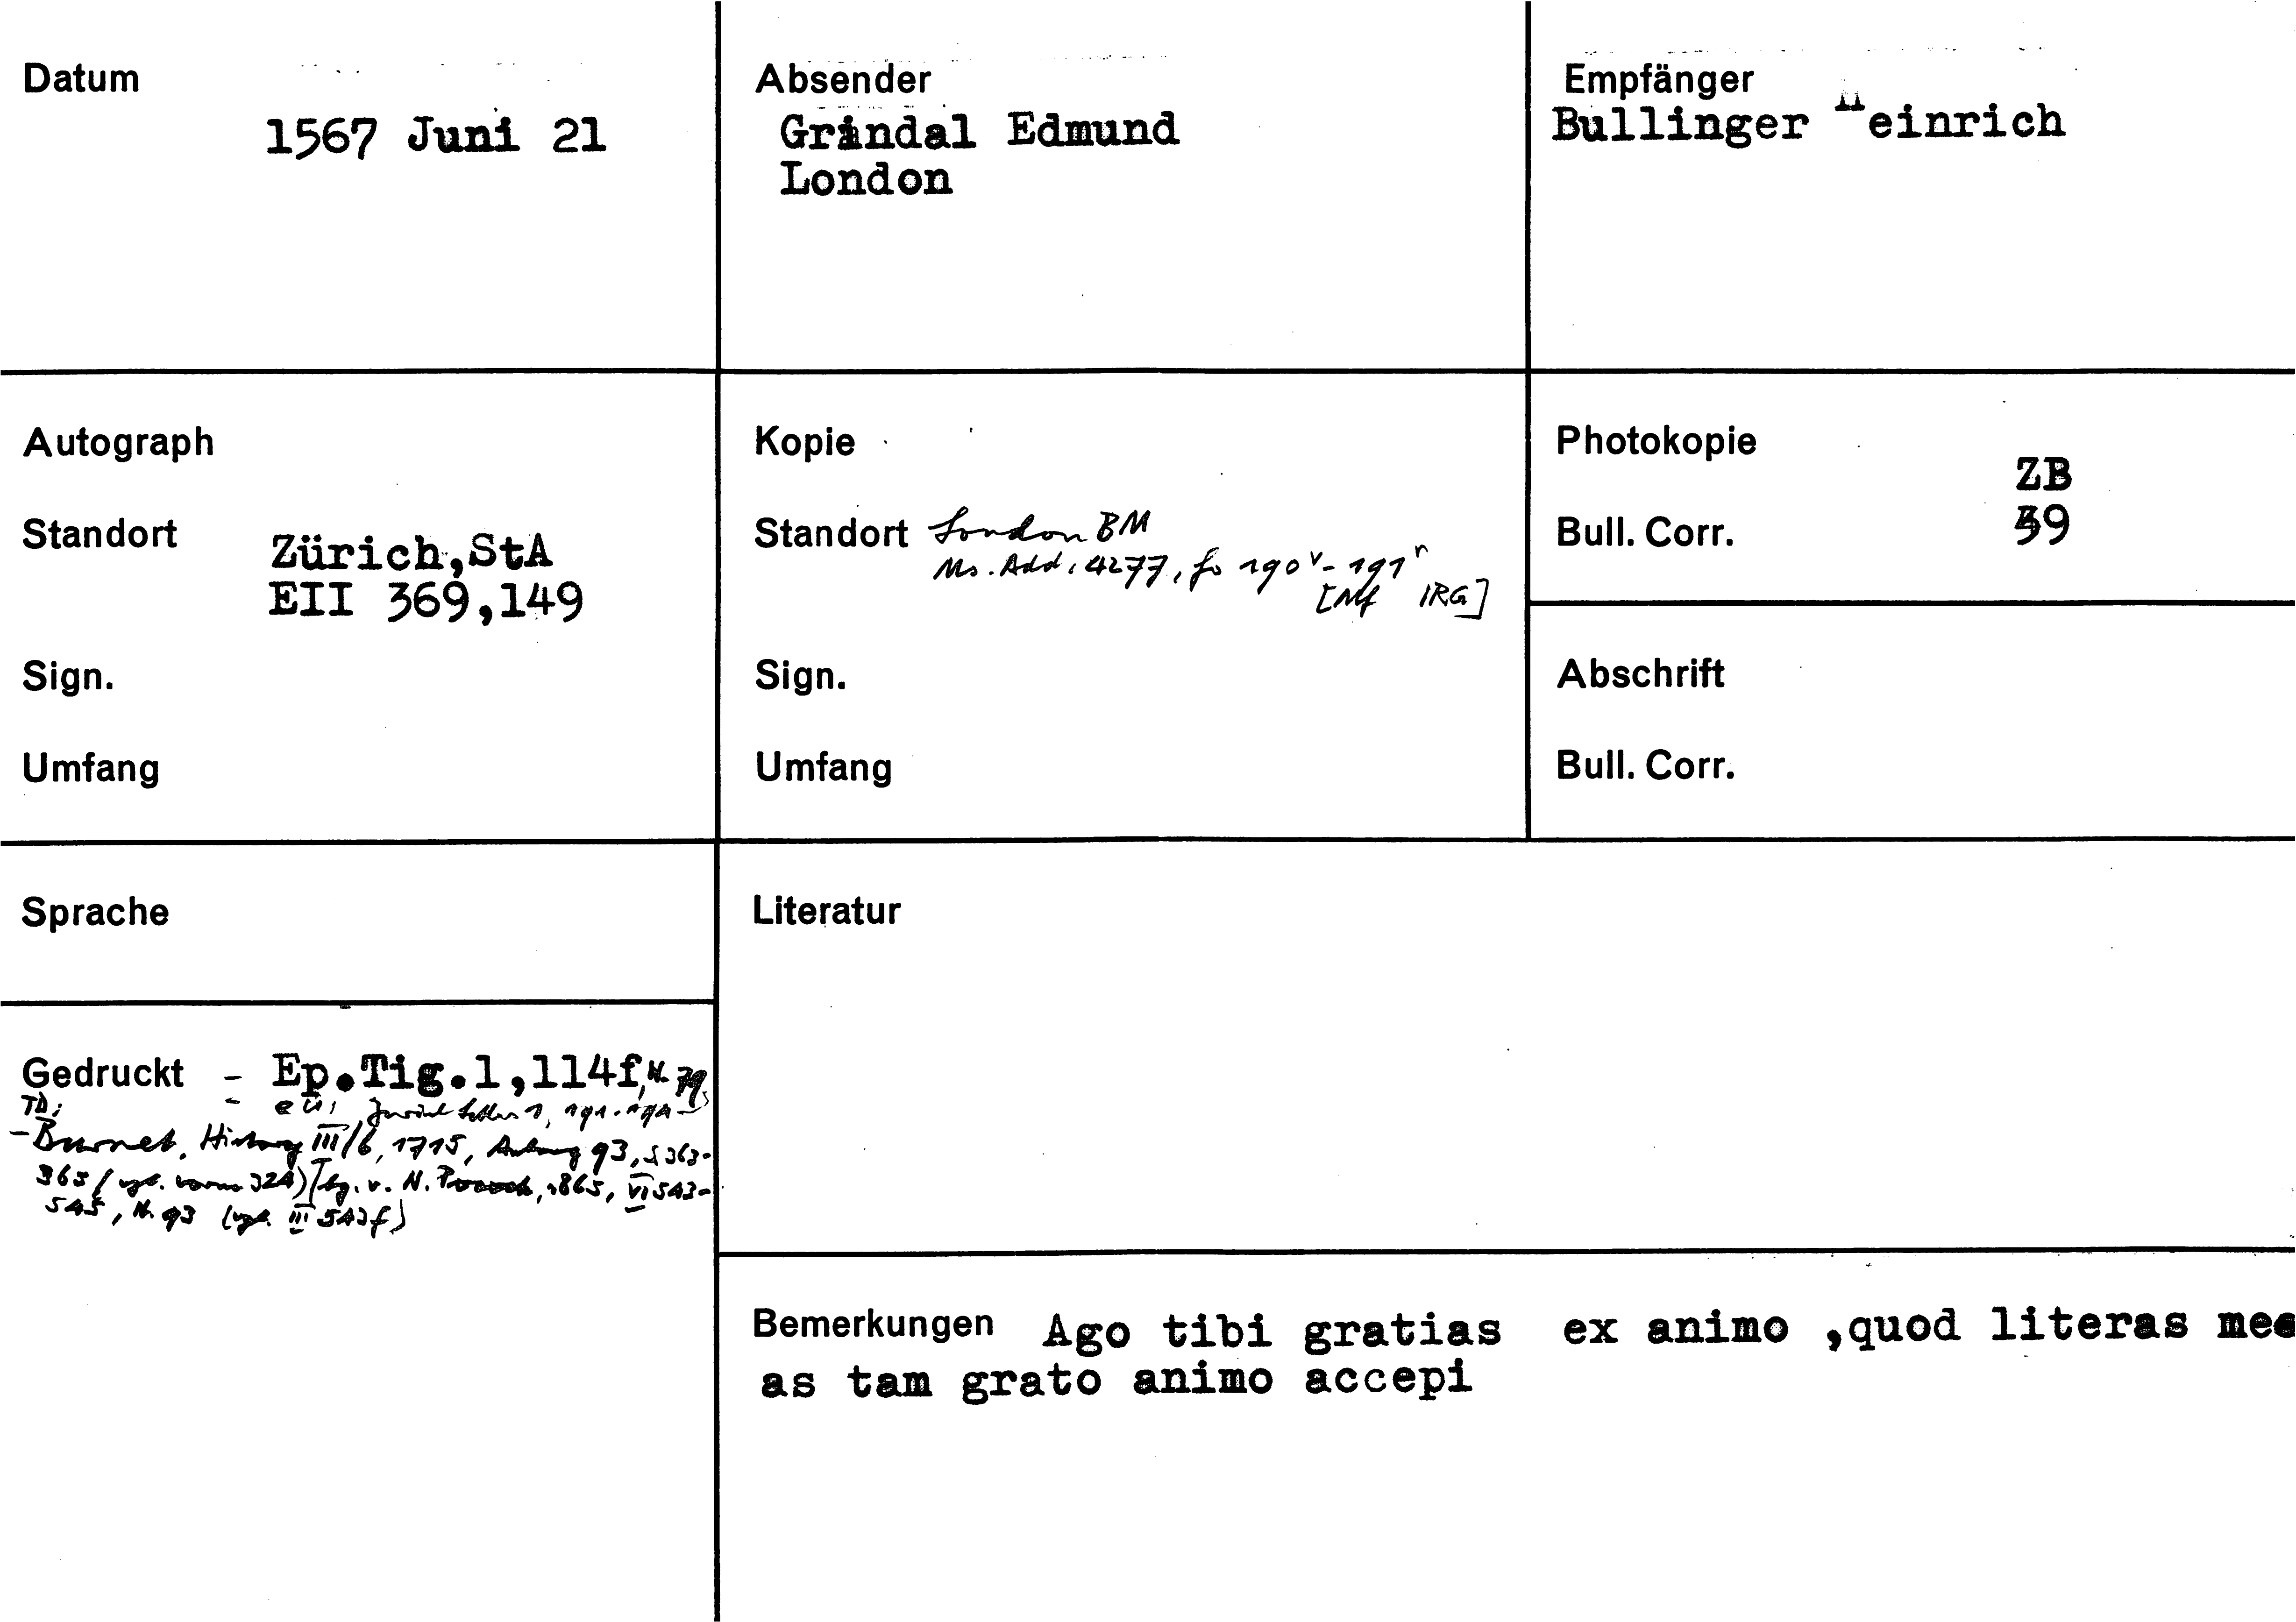 Datum
1567 Juni 21
Absender
Grindal Edmund
London
Empfänger
Bullinger Heinrich
Autograph
Standort
Zürich,StA
EII 369,149
Sign.
Umfang
Kopie
Standort London BM
Ms. Add. 4277, fo 190v - 191r
[Mf IRG]
Sign.
Umfang
Photokopie
ZB
Bull. Corr. 59
Abschrift
Bull. Corr.
Sprache
Literatur
Gedruckt - Ep.Tig.1,114f, N. 79
TD:
- Zurich Letters 1,
- Burnet, History III/6, 1715, Anhang 93, S 363-
365 (vgl. vorne 324) / hg. v. N. Pocock, 1865, VI 543-
545, N. 93 (vgl. III 543f)
Bemerkungen Ago tibi gratias ex animo ,quod literas me
as tam grato animo accepi